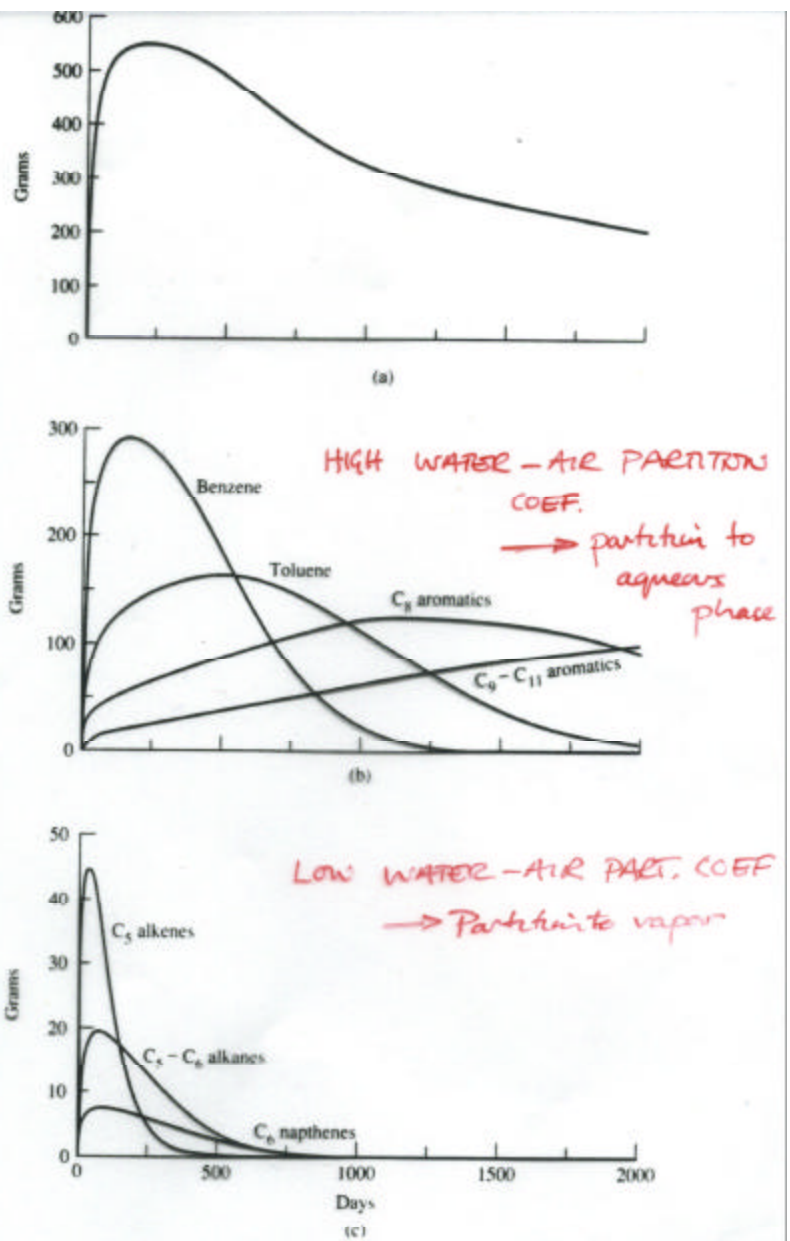 600
500
400
300
200
100
0
Grams
(a)
300
200
100
0
Grams
Benzene
Toluene
C₈ aromatics
C₉ – C₁₁ aromatics
HIGH WATER-AIR PARTITION
COEF.
→ partition to
aqueous
phase
(b)
50
40
30
20
10
0
Grams
C₅ alkenes
C₅ – C₆ alkanes
C₆ napthenes
LOW WATER-AIR PART. COEF
→ Partition to vapor
0 500 1000 1500 2000
Days
(c)